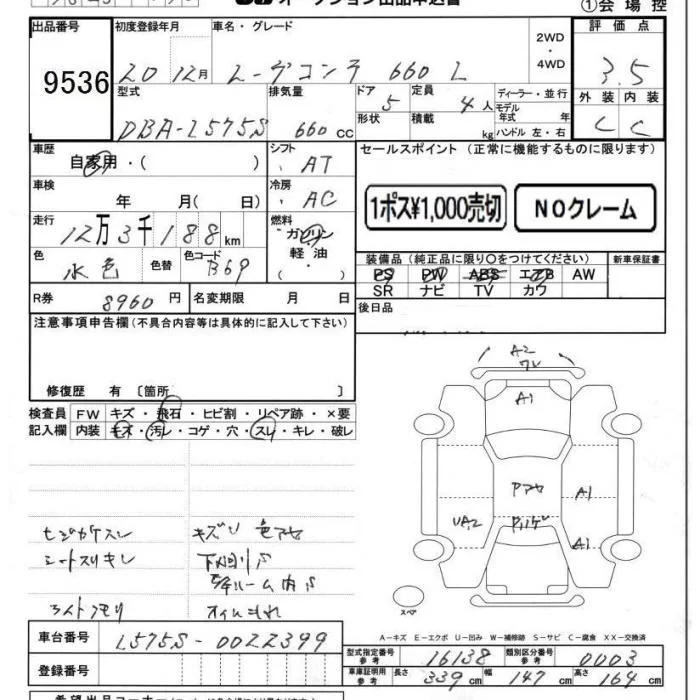 オークション出品申込書
①会場控
出品番号 初度登録年月 車名・グレード 2WD・4WD 評価点
9536 20 12月 ムーヴコンテ 660 L 3.5
型式 排気量 ドア 定員 ディーラー・並行 外装 内装
DBA-L575S 660 CC 5 4人 モデル年式 年 C C
形状 積載 kg ハンドル 左・右
車歴 シフト セールスポイント (正常に機能するものに限ります)
自家用・( ) AT
車検 冷房 1ポス¥1,000売切 NOクレーム
年 月( 日) AC
走行 燃料
12万3千188km ガソリン・軽油・( )
色 色替 色コード 装備品 (純正品に限り○をつけてください) 新車保証書
水色 B69 PS PW ABS エアB AW
SR ナビ TV カワ
R券 8960円 名変期限 月 日 後日品
注意事項申告欄(不具合内容等は具体的に記入して下さい)
修復歴 有〔箇所 〕
検査員 FW キズ・飛石・ヒビ割・リペア跡・×要
記入欄 内装 キズ・汚レ・コゲ・穴・スレ・キレ・破レ
A2
A1
Pアセ A1
UA2 A1
キズU 色アセ
シートスリキレ 下回りS
ルーム内S
ライトクモリ オイルもれ
スペア
A-キズ E-エクボ U-凹み W-補修跡 S-サビ C-腐食 XX-交換済
車台番号 L575S-0022399
登録番号
型式指定番号 参考 16138 類別区分番号 参考 0003
車庫証明用 参考 長さ 339cm 幅 147cm 高さ 164cm